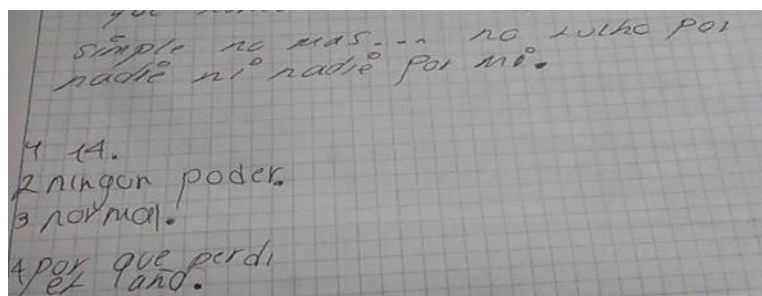 simple no mas... no lucho por
nadie ni nadie por mi.
1 14.
2 ningun poder.
3 normal.
4 por que perdi
el año.